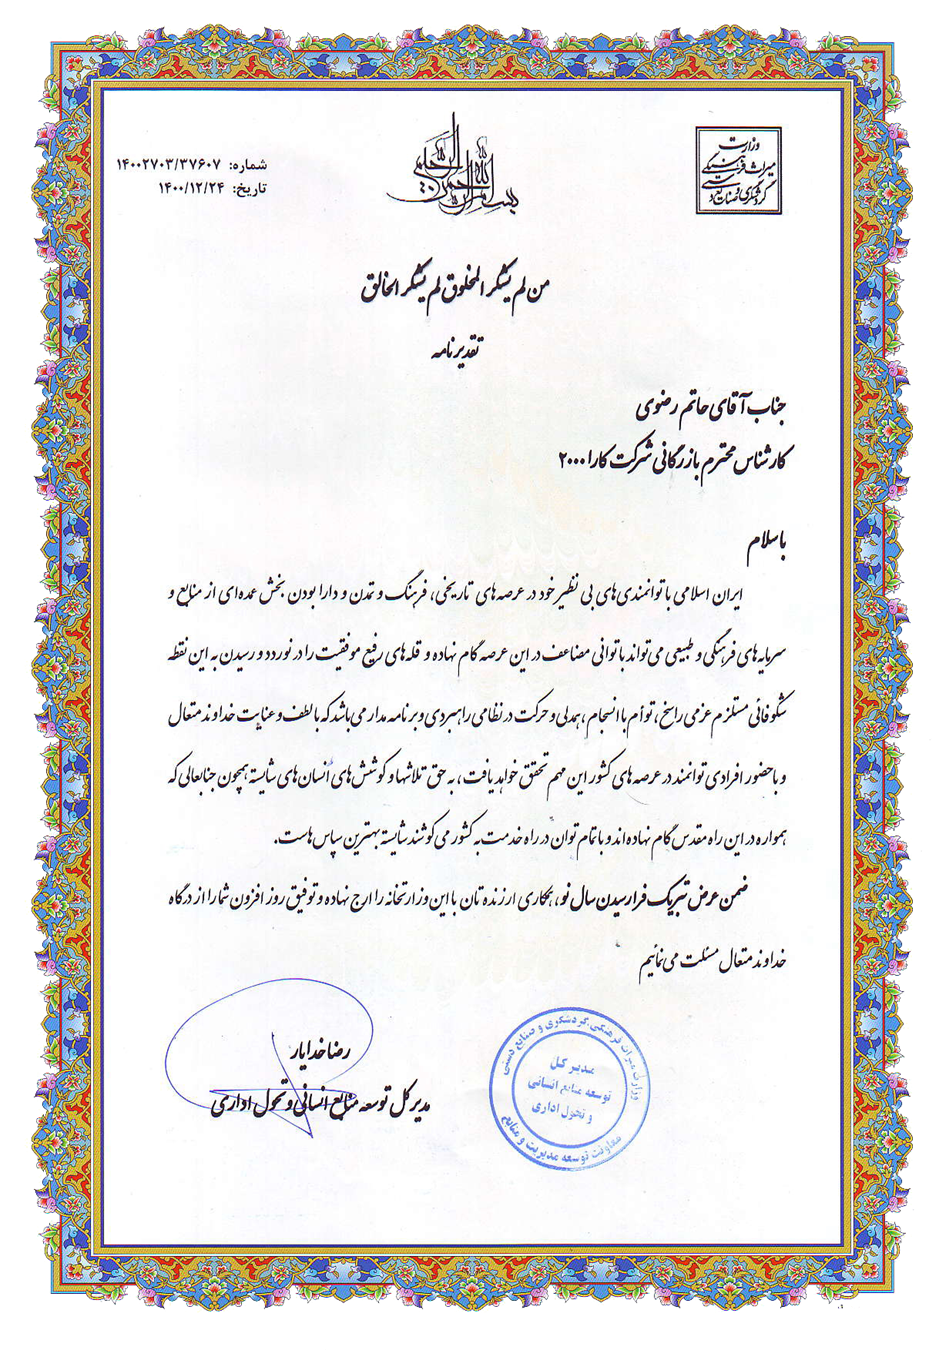 وزارت
میراث فرهنگی
گردشگری و صنایع دستی
بسم الله الرحمن الرحیم
شماره: ۱۴۰۰۲۷۰۳/۳۷۶۰۷
تاریخ: ۱۴۰۰/۱۲/۲۴
من لم یشکر المخلوق لم یشکر الخالق
تقدیرنامه
جناب آقای حاتم رضوی
کارشناس محترم بازرگانی شرکت کارا ۲۰۰۰
باسلام
ایران اسلامی با توانمندی‌های بی نظیر خود در عرصه‌های تاریخی، فرهنگ و تمدن و دارا بودن بخش عمده‌ای از منابع و
سرمایه‌های فرهنگی و طبیعی می‌تواند با توانی مضاعف در این عرصه گام نهاده و قله‌های رفیع موفقیت را در نوردد و رسیدن به این نقطه
شکوفائی مستلزم عزمی راسخ، توأم با انسجام، همدلی و حرکت در نظامی راهبردی و برنامه مدار می‌باشد که با لطف و عنایت خداوند متعال
و با حضور افرادی توانمند در عرصه‌های کشور این مهم تحقق خواهد یافت، به حق تلاشها و کوشش‌های انسان‌های شایسته همچون جنابعالی که
همواره در این راه مقدس گام نهاده اند و با تمام توان در راه خدمت به کشور می‌کوشند شایسته بهترین سپاس هاست.
ضمن عرض تبریک فرارسیدن سال نو، همکاری ارزنده تان با این وزارتخانه را ارج نهاده و توفیق روز افزون شما را از درگاه
خداوند متعال مسئلت می‌نمائیم
رضا خدایار
مدیر کل توسعه منابع انسانی و تحول اداری
وزارت میراث فرهنگی، گردشگری و صنایع دستی
مدیر کل
توسعه منابع انسانی
و تحول اداری
معاونت توسعه مدیریت و منابع